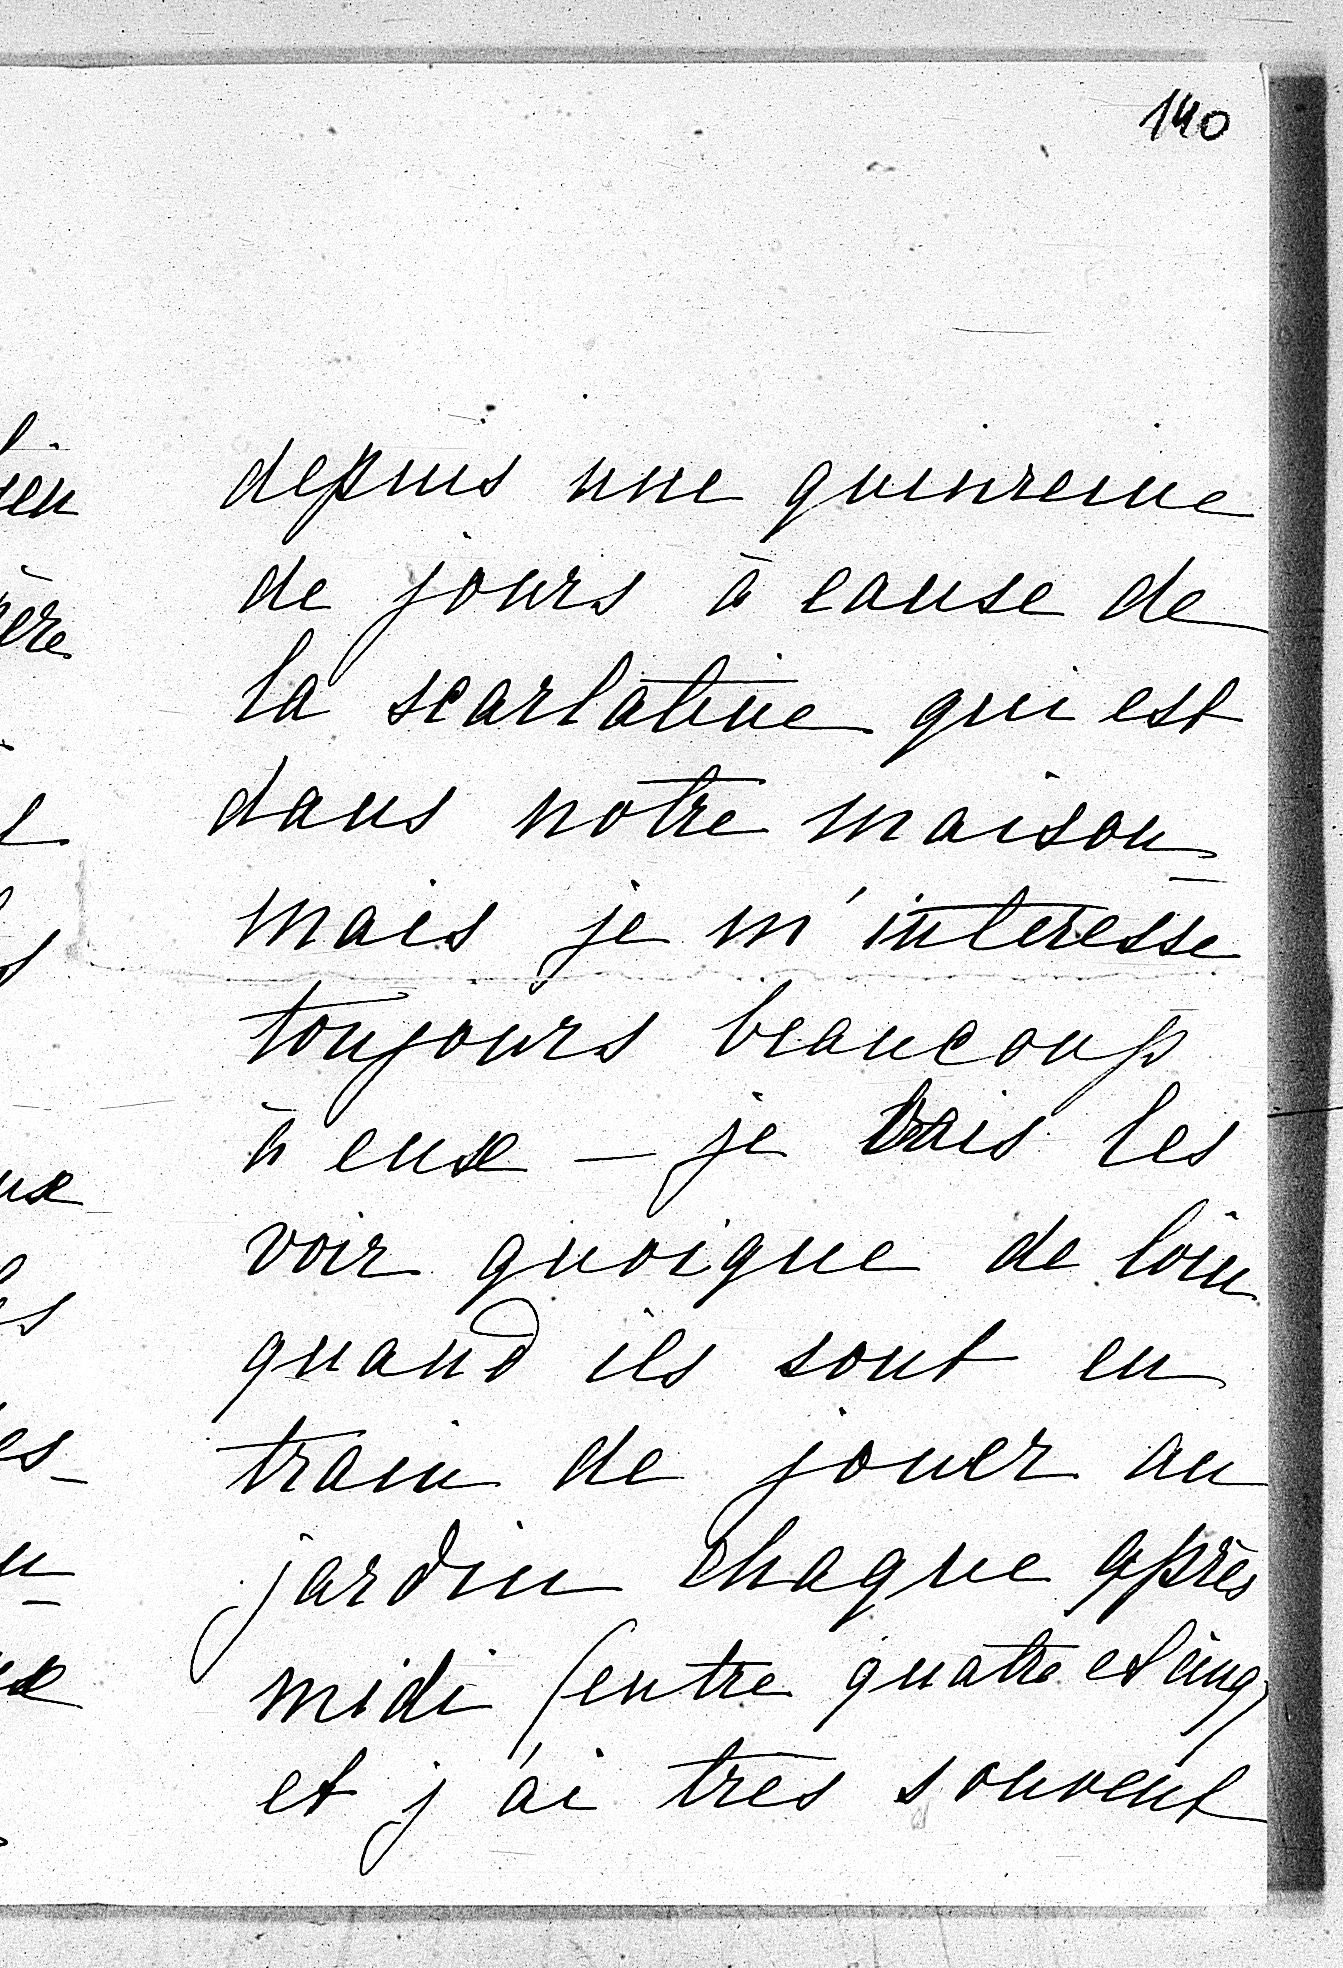 140
depuis une quinzeine
de jours à cause de
la scarlatine qui est
dans notre maison
mais je m'interesse
toujours beaucoup
à eux — je vais les
voir quoique de loin
quand ils sont en
train de jouer au
jardin chaque après
midi (entre quatre et cinq)
et j'ai très souvent